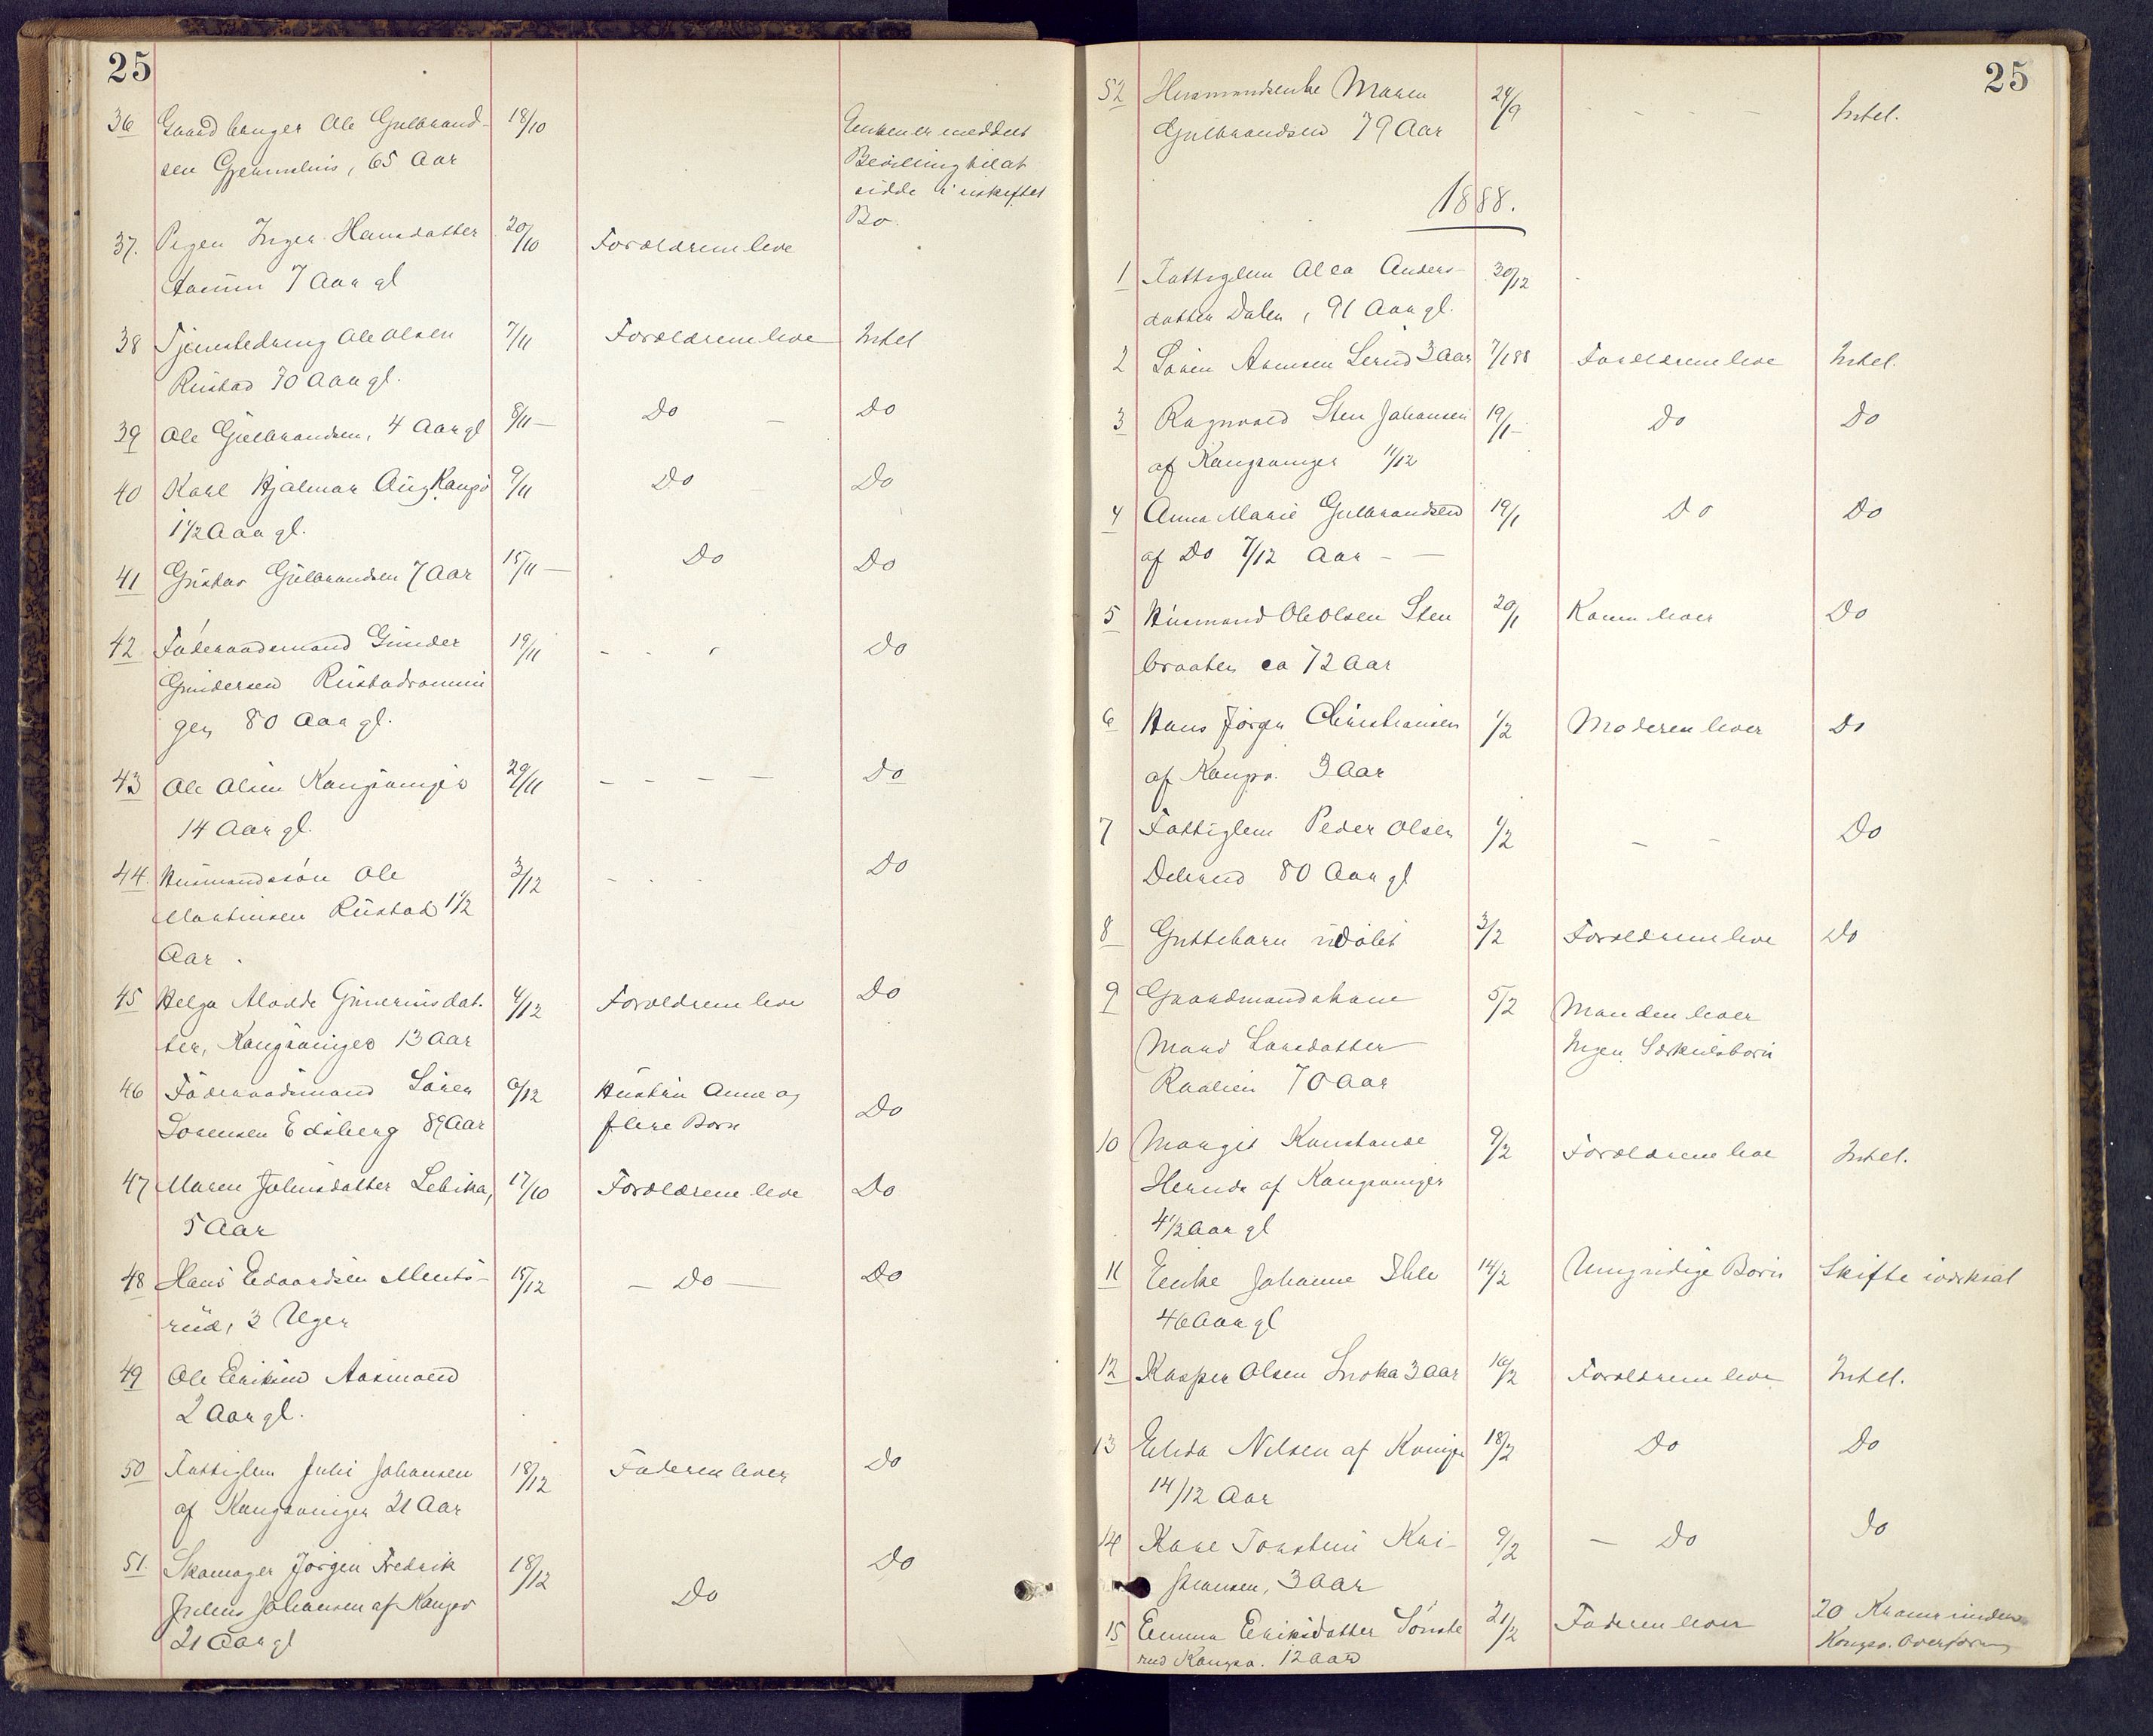 25
36 Gaardbruger Ole Gulbrand- 18/10 Enken er meddelt
sen Gjermshus, 65 Aar Bevilling til at
sidde i uskiftet
Bo.
37. Pigen Inger Hansdatter 20/10 Forældrene leve
7 Aar gl
38 Tjenestedreng Ole Olsen 7/11 Forældrene leve Intet
Rustad 30 Aar gl.
39 Ole Gulbrandsen, 4 Aar gl 8/11 — Do — Do
40 Karl Hjalmar Aug. Kongsv 9/11 Do — Do
1 1/2 Aar gl.
41 Gustav Gulbrandsen 7 Aar 15/11 — Do Do
42. Føderaadsmand Gunder 19/11 - - - Do
Gundersen Rustadroanin
gen 80 Aar gl.
43 Ole Olsen Kongsvinger 29/11 - - - - Do
14 Aar gl.
44. Husmandssøn Ole 3/12 - - - Do
Martinsen Rustad 1 1/2
Aar.
45 Helga Alvilde Guneriusdat- 4/12 Forældrene leve Do
ter, Kongsvinger 13 Aar
46 Føderaadsmand Søren 6/12 Hustru Anne og Do
Sorensen Edsberg 89 Aar flere Børn
47 Maren Johnsdatter Lebika, 17/10 Forældrene leve Do
5 Aar
48 Hans Edvardsen Ments- 15/12 — Do — Do
rud, 3 Uger
49 Ole Eriksen Aasmoen
2 Aar gl.
50 Fattiglem Julie Johansen 18/12 Faderen lever Do
af Kongsvinger 21 Aar
51. Skomager Jørgen Fredrik 18/12 Do Do
Julius Johansen af Kongsv
21 Aar gl
25
52 Husmandsenke Maren 24/9 - - - Intet.
Gulbrandsen 79 Aar
1888.
1 Fattiglem Alea Anders- 30/12
datter Dalen, 91 Aar gl.
2 Søren Arnesen Lerud 3 Aar 7/1 88 Forældrene leve Intet.
3 Ragnvald Sten Johansen 19/1 - Do Do
af Kongsvinger 11/12
4 Anna Marie Gulbrandsen 19/1 Do Do
af Do 7/12 Aar - —
5 Husmand Ole Olsen Sten 20/1 Konen lever Do
braaten ca 72 Aar
6 Hans Jørgen Christiansen 1/2 Moderen lever Do
af Kongsv. 3 Aar
7 Fattiglem Peder Olsen 1/2 - - Do
80 Aar gl
8 Guttebarn udøbt 3/2 Forældrene leve Do
9 Gaardmandskone 5/2 Manden lever
Mari Larsdatter Ingen Særkulsbørn
70 Aar
10 Margit Konstanse 9/2 Forældrene leve Intet.
af Kongsvinger
4 1/2 Aar gl
11 Enke Johanne Ihle 14/2 Umyndige Børn Skifte iværksat
46 Aar gl
12 Kasper Olsen Snoka 3 Aar 16/2 Forældrene leve Intet.
13 Elida Nilsen af Kvinger 18/2 Do Do
14/12 Aar
14 Karl Torstein Kri- 9/2 — Do Do
stiansen, 3 Aar
15 Emma Eriksdatter Sonste 21/2 Faderen lever 20 Kroner inden
rud Kongsv. 12 Aar Kongsv. Overform